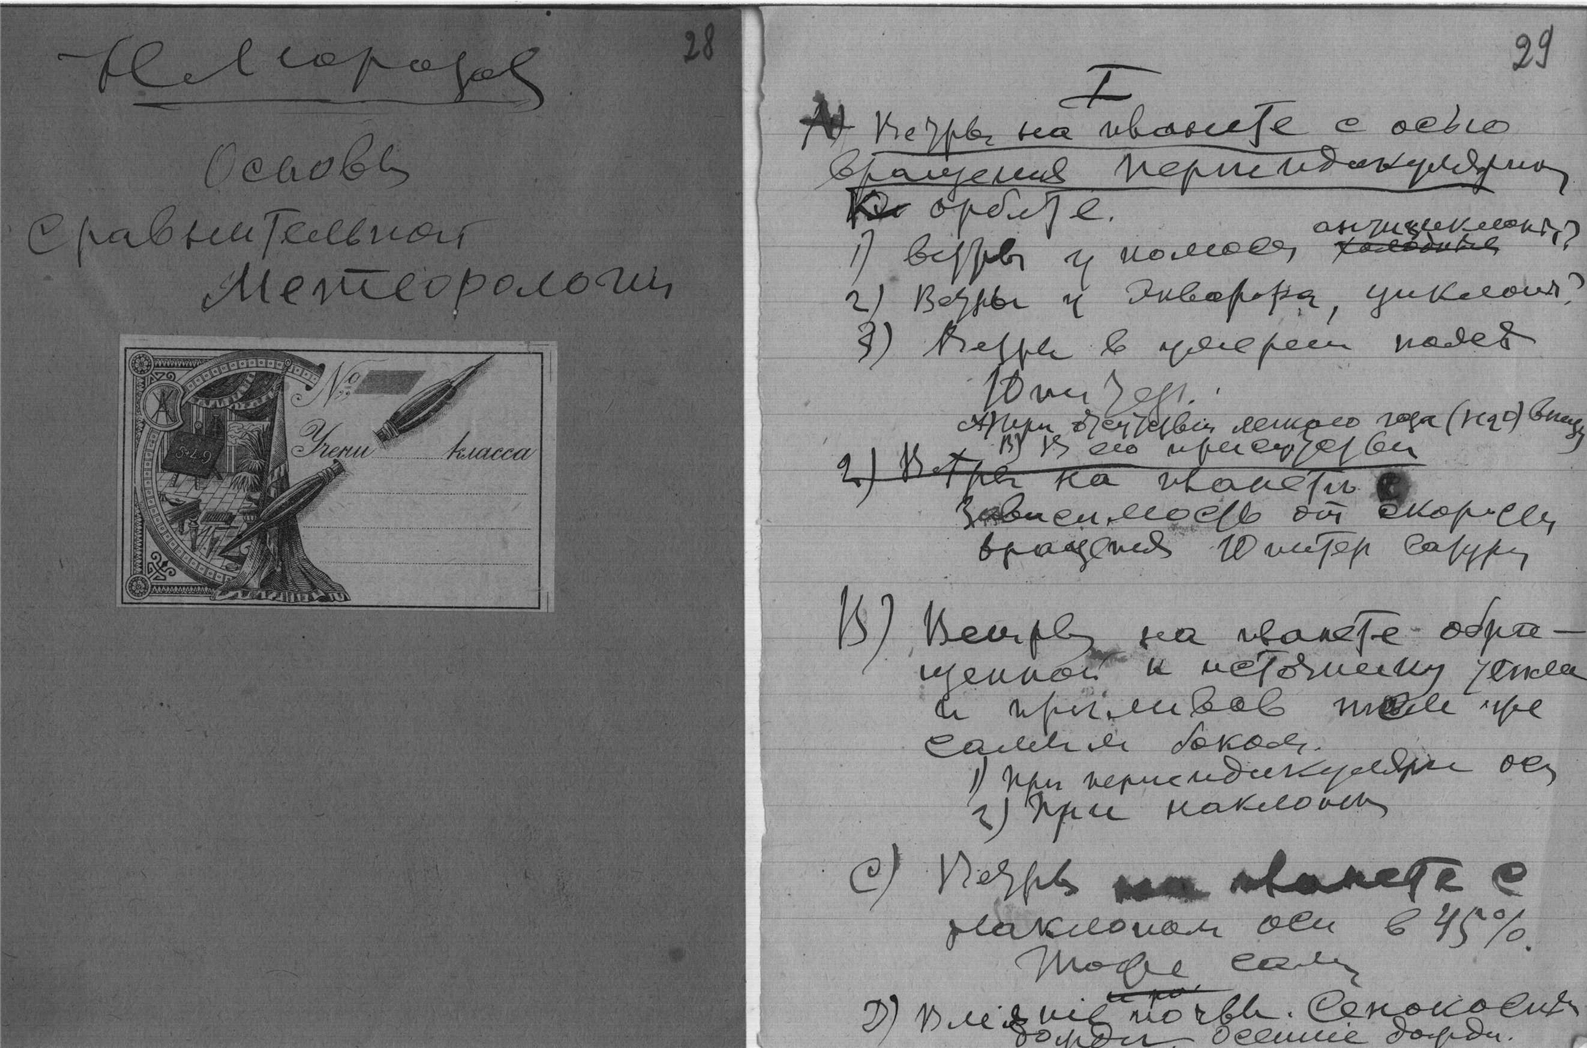 28
Н Морозов
Основы
Сравнительной
Метеорологии
№
Учени класса
29
I
А) Ветры на планете с осью
вращения перпендикулярной
к орбите.
антициклоны?
1) ветры у полюса холодные
2) Ветры у Экватора, циклоны?
3) Ветры в умерен поясе
Юпитер.
А) При отсутствии легкого газа (H2O)
В) В его присутствии
2) Ветры на планете с
Зависимость от скорости
вращения Юпитер Сатурн
В) Ветры на планете обра-
щенной к источнику тепла
и приливов тем же
самым боком.
1) При перпендикулярн оси
2) При наклонн
С) Ветры на планете с
наклоном оси в 45%.
Тоже самы
D) Влияніе почвы. Сенокосные
дожди, осенніе дожди.